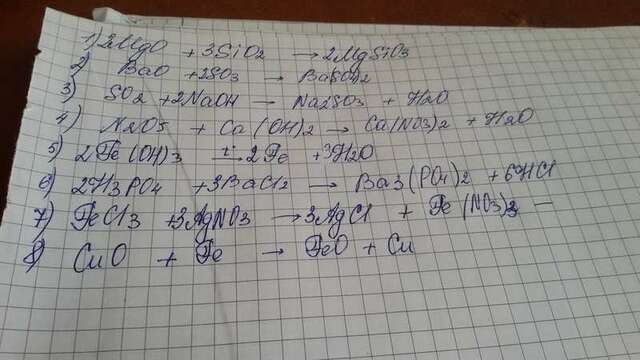 1) 2MgO + 3SiO2 → 2MgSiO3
2) BaO + 2SO3 → BaSO42
3) SO2 + 2NaOH → Na2SO3 + H2O
4) N2O5 + Ca(OH)2 → Ca(NO3)2 + H2O
5) 2Fe(OH)3 t→ 2Fe + 3H2O
6) 2H3PO4 + 3BaCl2 → Ba3(PO4)2 + 6HCl
7) FeCl3 + 3AgNO3 → 3AgCl + Fe(NO3)3 -
8) CuO + Fe → FeO + Cu